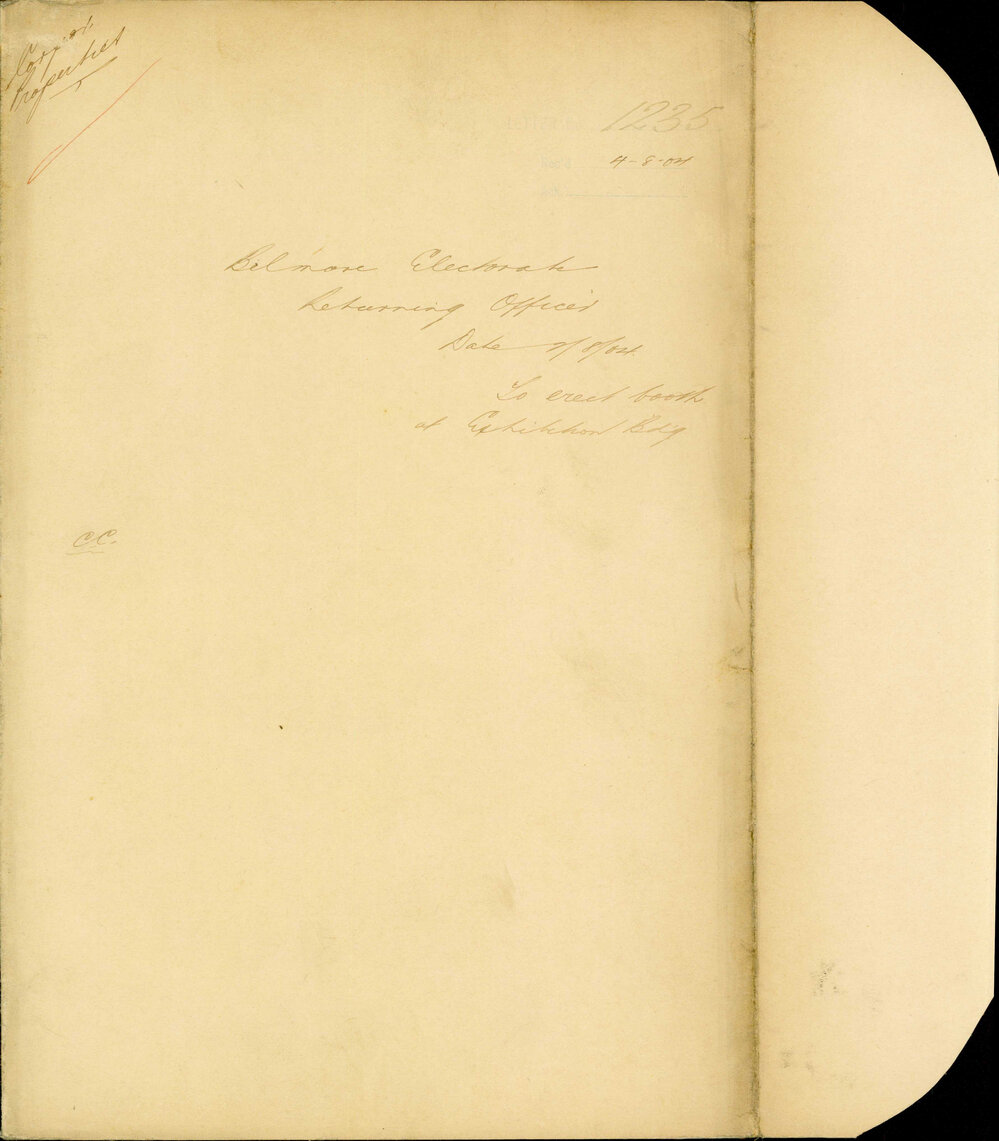 Corpor
Properties
1235
4-8-04
Belmore Electorate
Returning Officer
Date 2/8/04
To erect booth
at Exhibition Bdg
C.C.